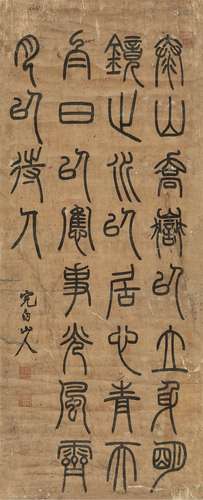 泰山喬嶽以立身明
鏡止水以居心青天
白日以應事光風霽
月以待人
完白山人